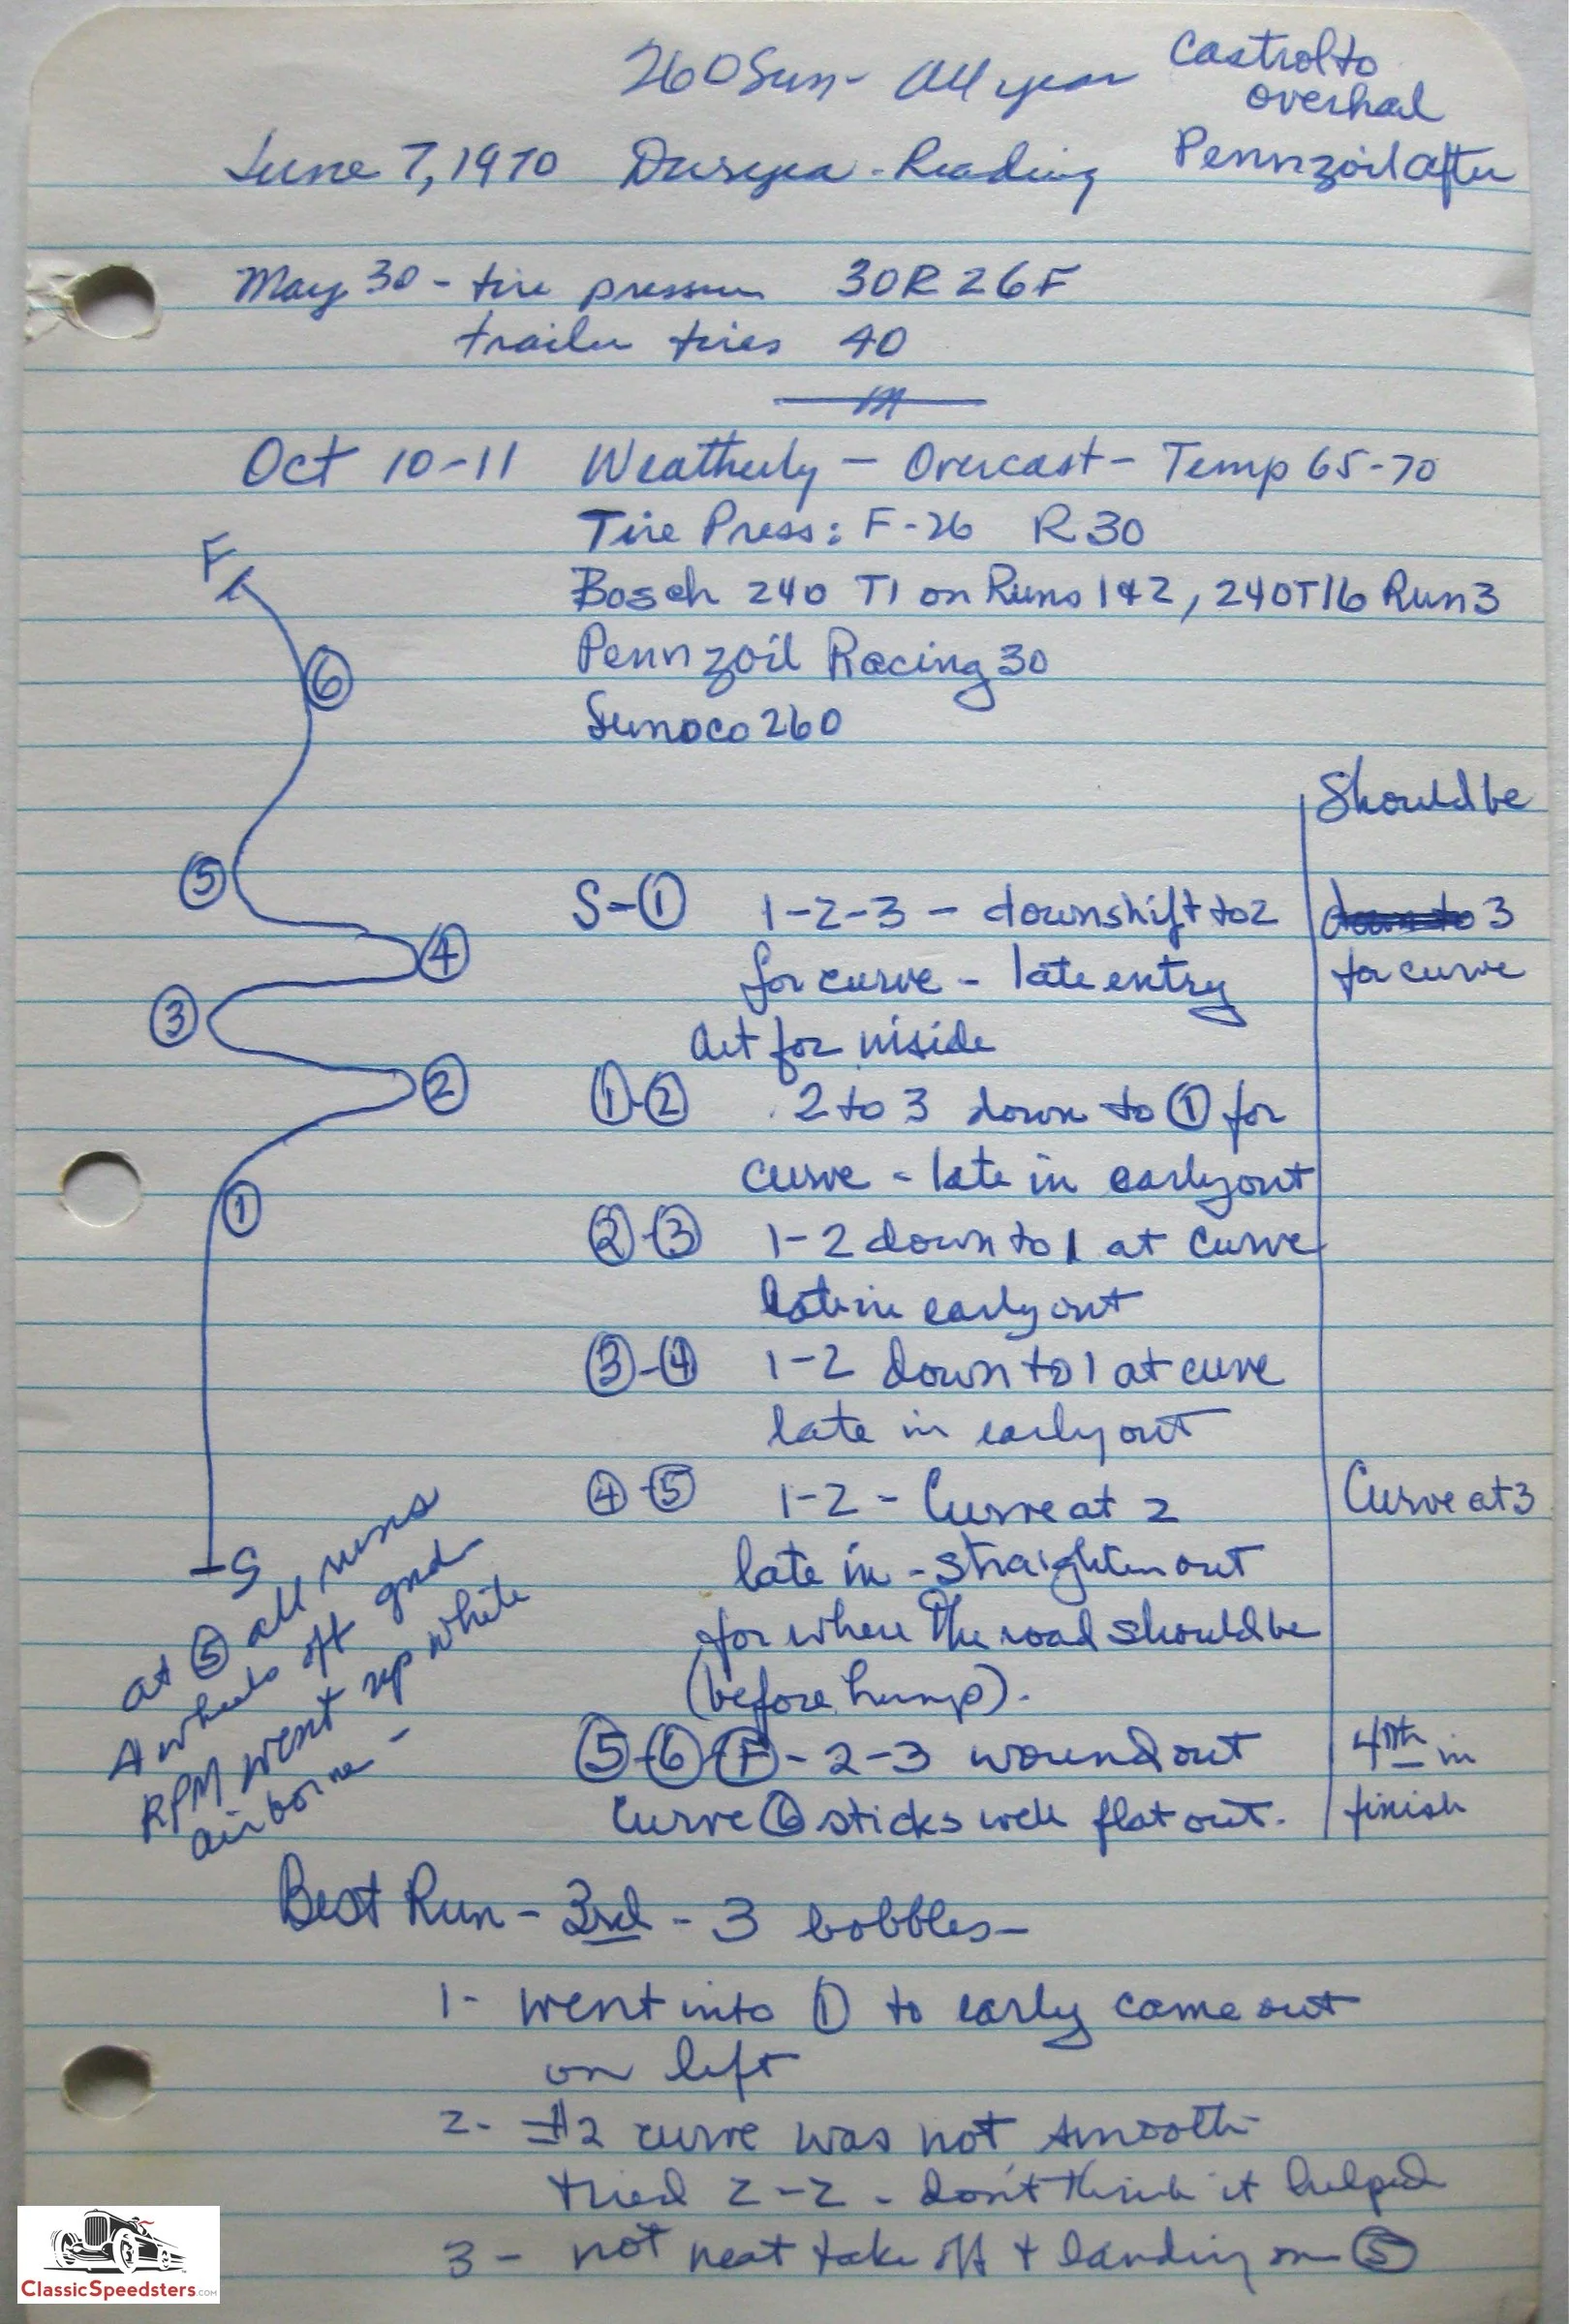 260 Sun - All year
Castrol to
overhal
June 7, 1970 Duryea - Reading
Pennzoil after
May 30 - tire pressure 30R 26F
trailer tires 40
Oct 10-11 Weatherly - Overcast - Temp 65-70
Tire Press: F-26 R30
Bosch 240 T1 on Runs 1 & 2, 240T16 Run 3
Pennzoil Racing 30
Sunoco 260
F
6
5
4
3
2
1
S
Should be
S-① 1-2-3 - downshift to 2
3
for curve - late entry
for curve
out for inside
①-② 2 to 3 down to ① for
curve - late in early out
②-③ 1-2 down to 1 at curve
late in early out
③-④ 1-2 down to 1 at curve
late in early out
④-⑤ 1-2 - Curve at 2
Curve at 3
late in - straighten out
for where the road should be
(before hump).
⑤-⑥-Ⓕ - 2-3 wound out
4th in
Curve ⑥ sticks well flat out.
finish
at ⑤ all runs
4 wheels off gnd -
RPM went up white
airborne -
Best Run - 3rd - 3 bobbles -
1- went into ① to early came out
on left
2. #2 curve was not smooth
tried 2-2 - don't think it helped
3 - not neat take off & landing on ⑤
ClassicSpeedsters.com